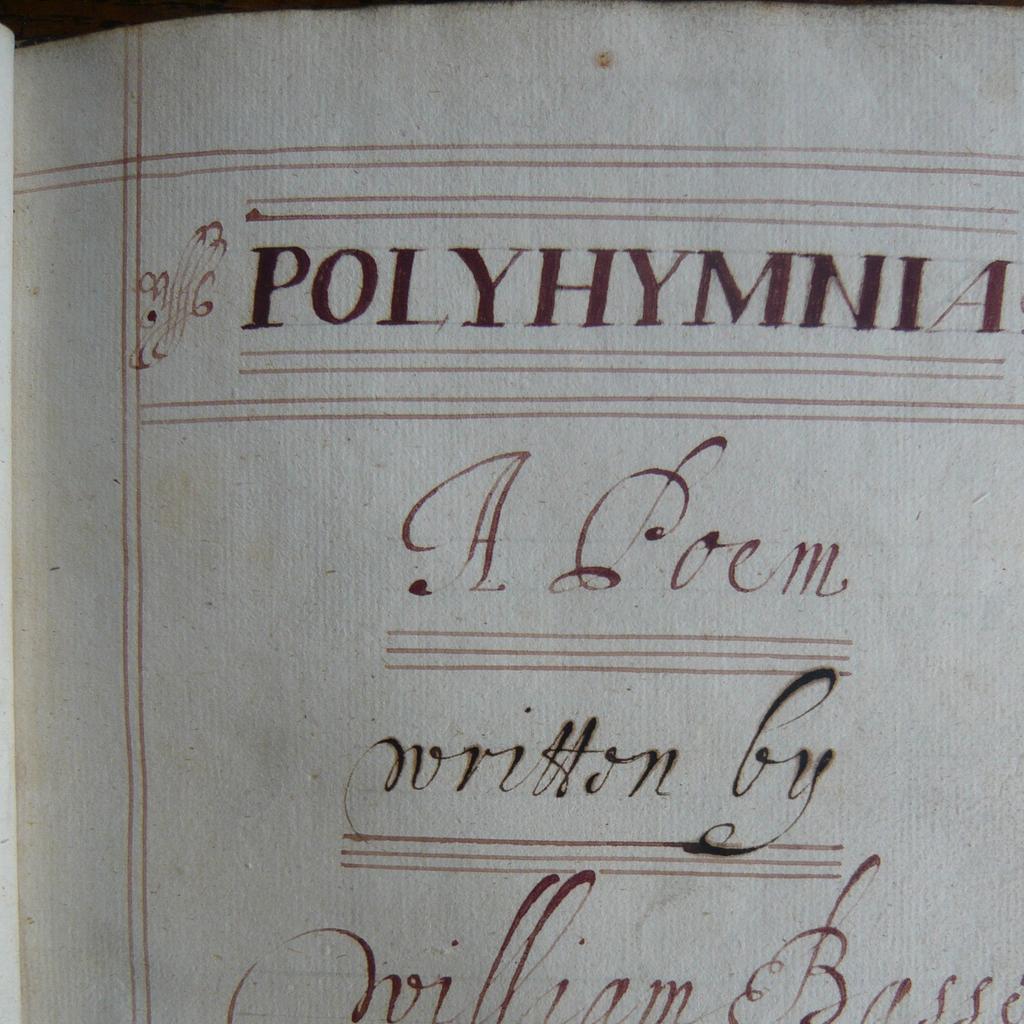 POLYHYMNIA
A Poem
written by
William Basse